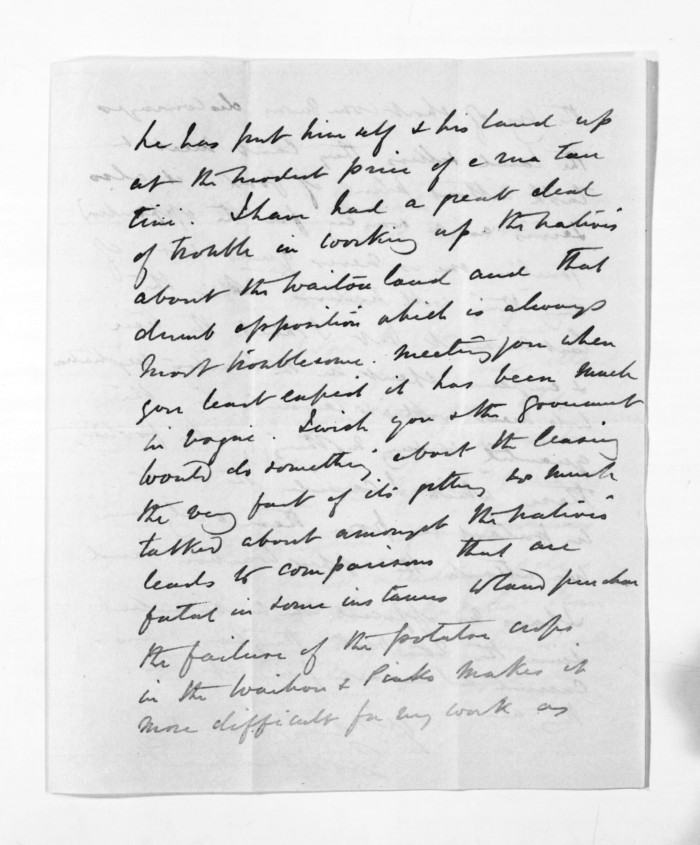 he has put himself & his land up
at the modest price of e rua tau
tini. I have had a great deal
of trouble in working up the natives
about the Waitoa land and that
dumb opposition which is always
most troublesome. meeting you when
you least expect it has been much
in vogue. I wish you & the Goverment
would do something about the leasing
the very fact of its getting so much
talked about amongst the natives
leads to comparisons that are
fatal in some instances to land purchase
the failure of the potatoe crops
in the Waihou & Piako makes it
more difficult for my work as